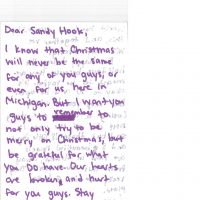 Dear Sandy Hook,
I know that Christmas
will never be the same
for any of you guys, or
even for us here in
Michigan. But I want you
guys to remember to
not only try to be
merry on Christmas, but
be grateful for what
you Do have. Our hearts
are broken, and hurt
for you guys. Stay